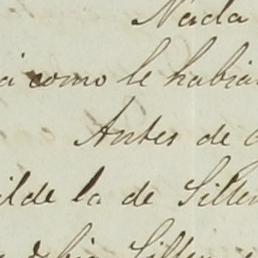 Nada
a como le habian
Antes de
ilde la de Sillen
debia Sillen